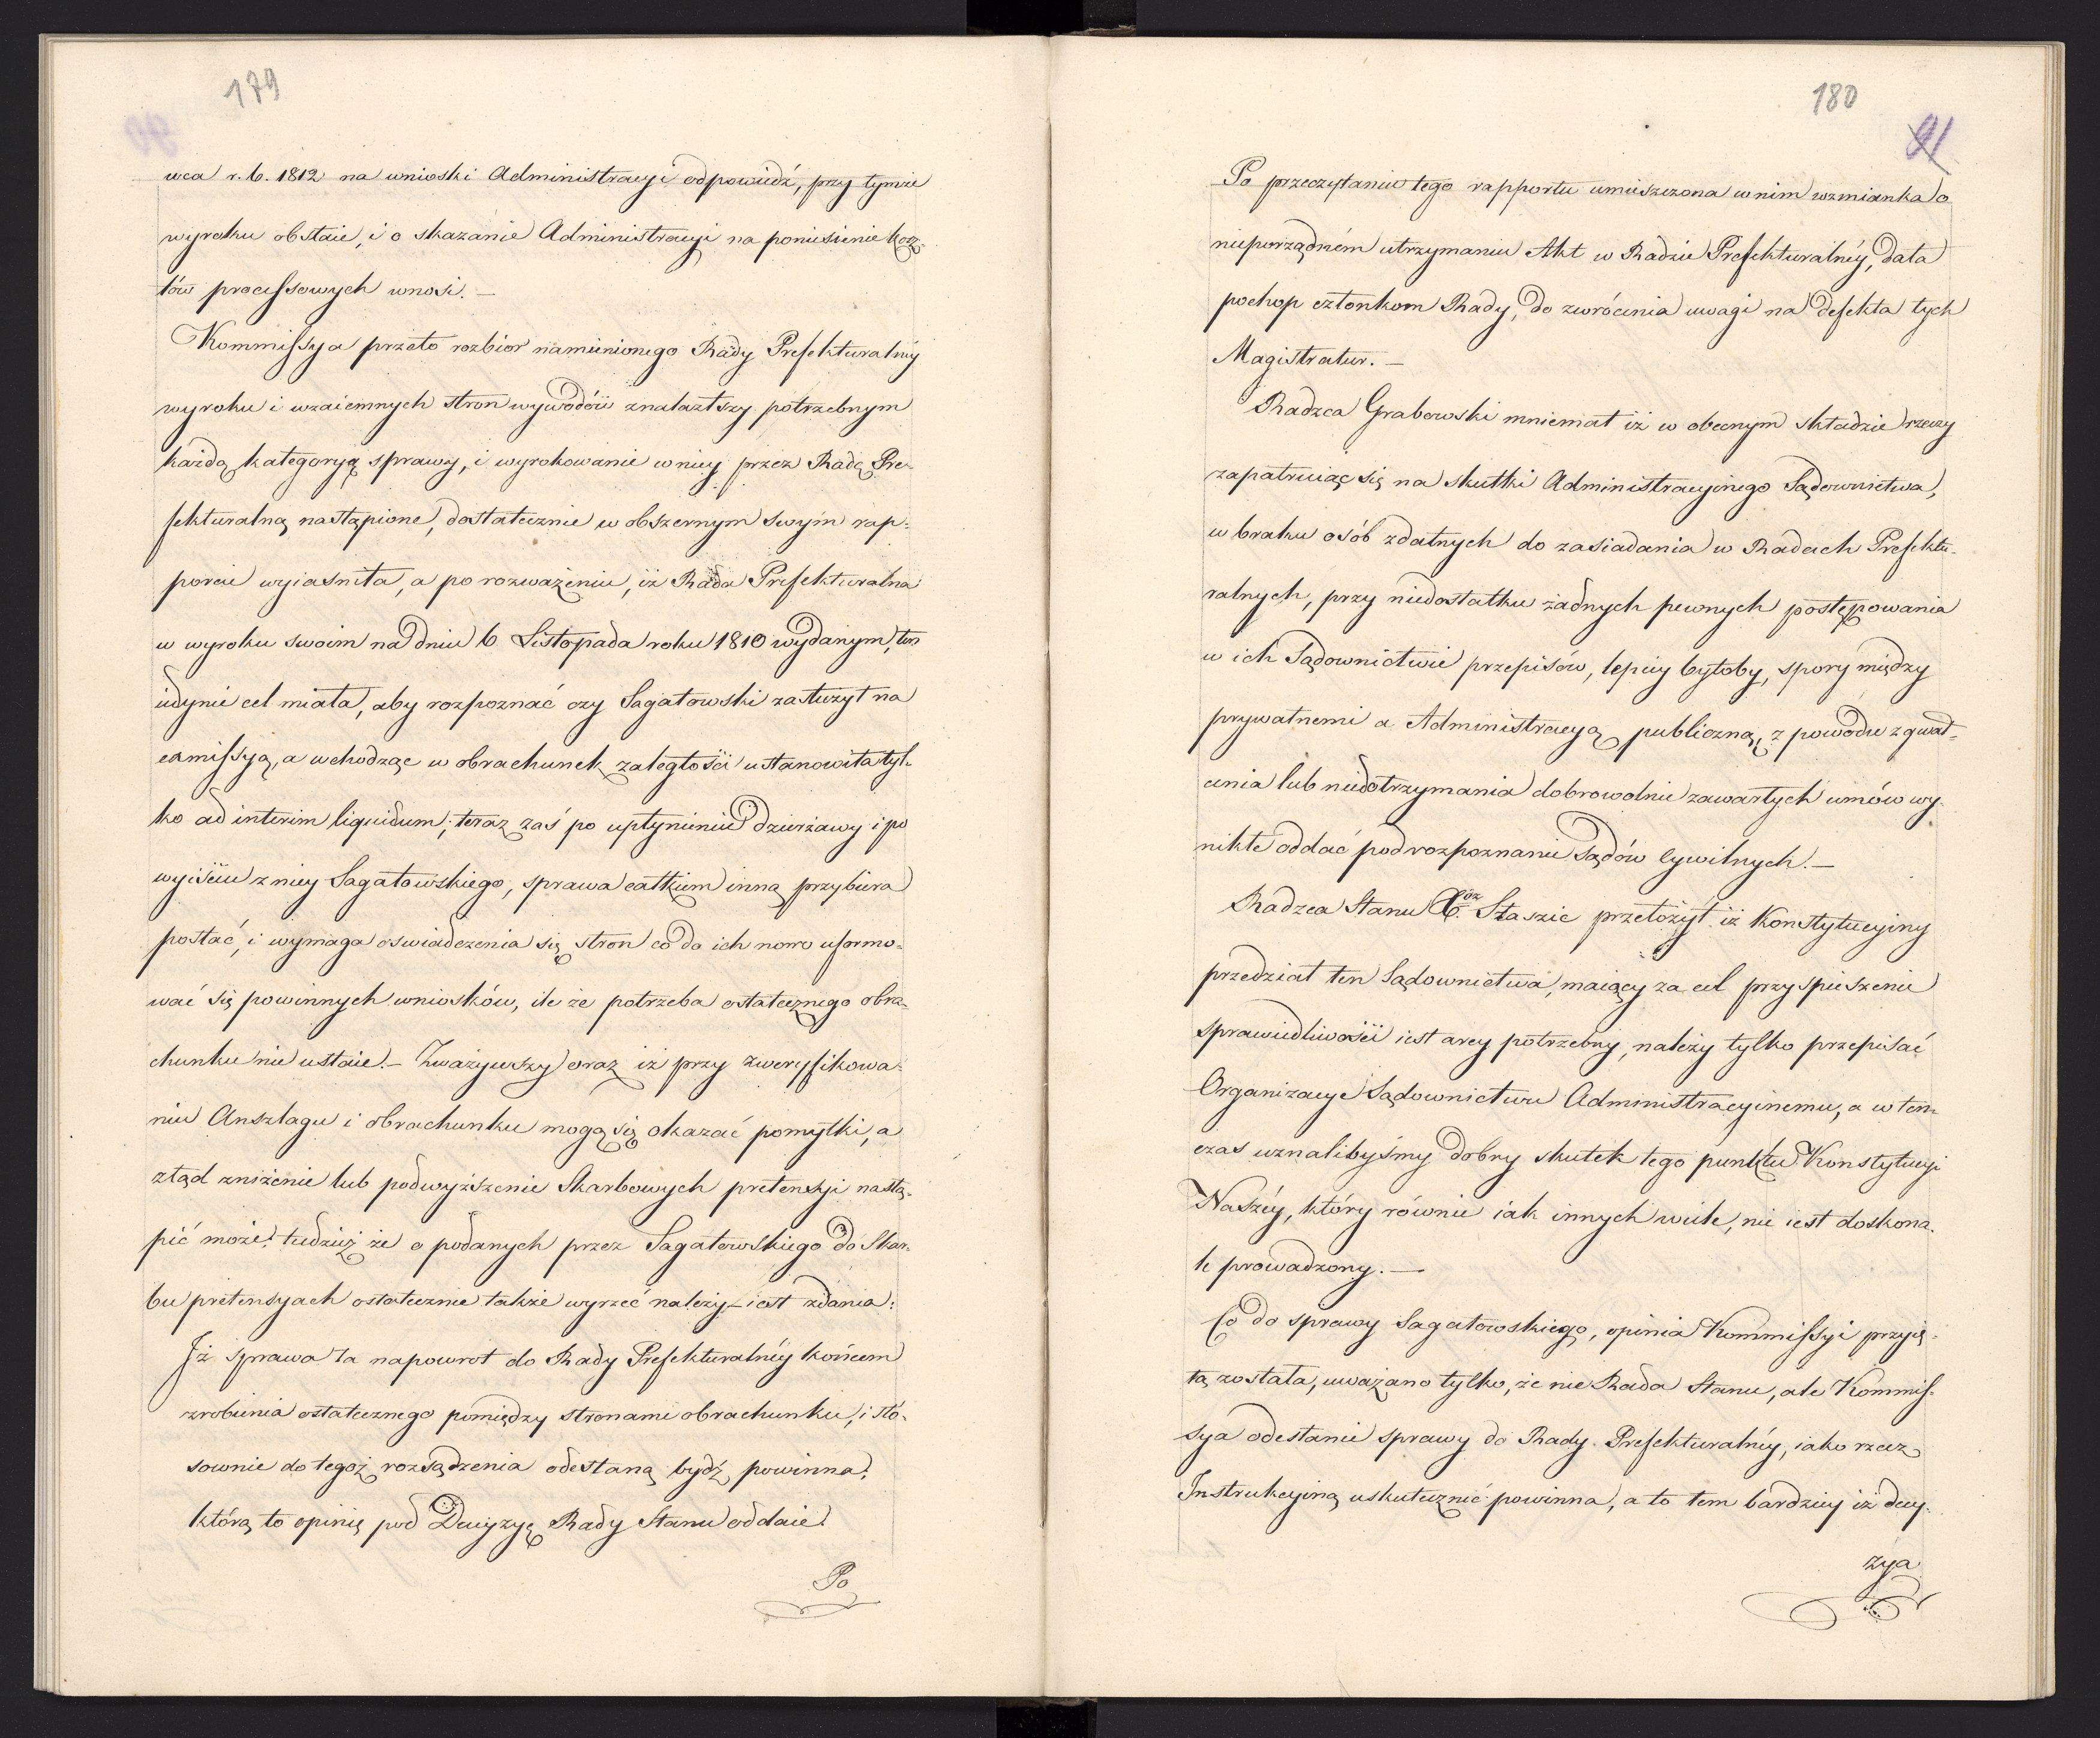 179
wca r. b. 1812 na wnioski Administracyi odpowiedź, przy tymże
wyroku obstaie, i o skazanie Administracyi na poniesienie kosz-
tów processowych wnosi. —
Kommissya przeto rozbior namienionego Rady Prefekturalnéy
wyroku i wzaiemnych stron wywodów znalazłszy potrzebnym
każdą kategoryą sprawy, i wyrokowanie w niey przez Radę Pre-
fekturalną nastąpione, dostatecznie w obszernym swym rap-
porcie wyiasniła, a po rozważeniu, iż Rada Prefekturalna
w wyroku swoim na dniu 6 Listopada roku 1810 wydanym, ten
iedynie cel miała, aby rozpoznać czy Sagatowski zasłużył na
exmissyą, a wchodząc w obrachunek zaległości ustanowiła tyl-
ko ad interim liquidum; teraz zaś po upłynieniu dzierżawy i po
wyiściu z niey Sagatowskiego, sprawa całkiem inną przybiera
postać, i wymaga oswiadczenia się stron co do ich nowo uformo-
wać się powinnych wniosków, ile że potrzeba ostatecznego obra-
chunku nie ustaie. — Zważywszy oraz iż przy zweryfikowa-
niu Anszlagu i obrachunku mogą się okazać pomyłki, a
ztąd zniżenie lub podwyższenie Skarbowych pretensyi nastą-
pić może, tudzież że o podanych przez Sagatowskiego do Skar-
bu pretensyach ostatecznie także wyrzec należy — iest zdania:
Iż sprawa ta napowrot do Rady Prefekturalnéy końcem
zrobienia ostatecznego pomiędzy stronami obrachunku, i sto-
sownie do tegoż rozsądzenia odesłaną bydź powinna,
którą to opinię pod Decyzyą Rady Stanu oddaie.
Po
180
91
Po przeczytaniu tego rapportu umieszczona w nim wzmianka o
nieporządném utrzymaniu Akt w Radzie Prefekturalnéy, dała
pochop członkom Rady, do zwrócenia uwagi na defekta tych
Magistratur. —
Radzca Grabowski mniemał iż w obecnym składzie rzeczy
zapatruiąc się na skutki Administracyinego Sądownictwa,
w braku osób zdatnych do zasiadania w Radach Prefektu-
ralnych, przy niedostatku żadnych pewnych postępowania
w ich Sądownictwie przepisów, lepiey byłoby, spory między
prywatnemi a Administracyą publiczną, z powodu zgwał-
cenia lub niedotrzymania dobrowolnie zawartych umów wy-
nikłe oddać pod rozpoznanie Sądów Cywilnych. —
Radzca Stanu X. Staszic przełożył iż Konstytucyiny
przedział ten Sądownictwa, maiący za cel przyspieszenie
sprawiedliwości iest arcy potrzebny, należy tylko przepisać
Organizacye Sądownictwu Administracyinemu, a w ten
czas uznalibyśmy dobry skutek tego punktu Konstytucyi
Naszéy, który równie iak innych wiele, nie iest doskona-
le prowadzony. —
Co do sprawy Sagatowskiego, opinia Kommissyi przyię-
tą została, uważano tylko, że nie Rada Stanu, ale Kommis-
sya odesłanie sprawy do Rady Prefekturalnéy, iako rzecz
Instrukcyiną uskutecznić powinna, a to tem bardziey iż decy-
zya